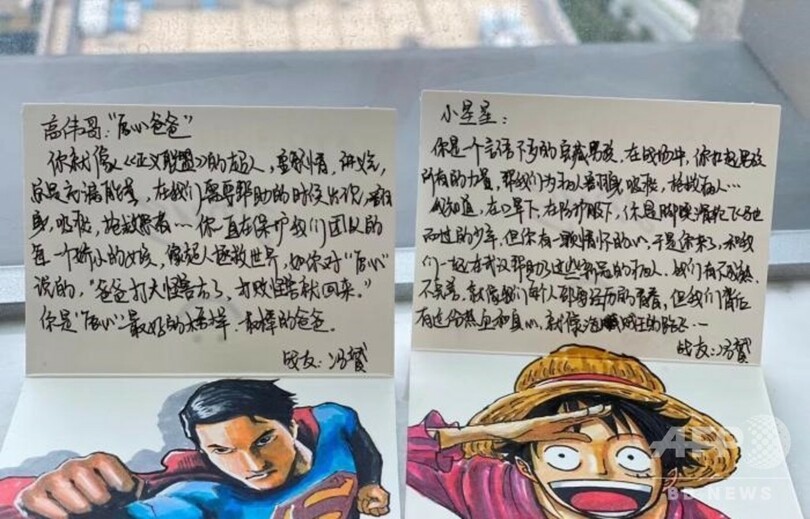 高伟哥：“居心爸爸”
你就像《正义联盟》的超人，重感情，讲义气，
总是充满能量，在我们需要帮助的时候出现，翻
身，吸痰，抢救患者…你一直在保护我们团队的
每一个娇小的女孩，像超人拯救世界，如你对“居心”
说的，“爸爸打大怪兽去了，打败怪兽就回来。”
你是“居心”最好的榜样，最棒的爸爸。
战友：冯贺
小星星：
你是一个言语不多的宝藏男孩，在战场中，你扛起男孩
所有的力量，帮我们为病人翻身，吸痰，抢救病人…
我知道，在口罩下，在防护服下，你是脚踩滑板飞驰
而过的少年，但你有一颗情怀的心，于是你来了，和我
们一起在武汉帮助了这些的病人，我们有不成熟，
不完善，就像我们每个人都要经历的青春，但我们背后
有这份热血和真心，就像海贼王的路飞…
战友：冯贺
AFP
BB NEWS